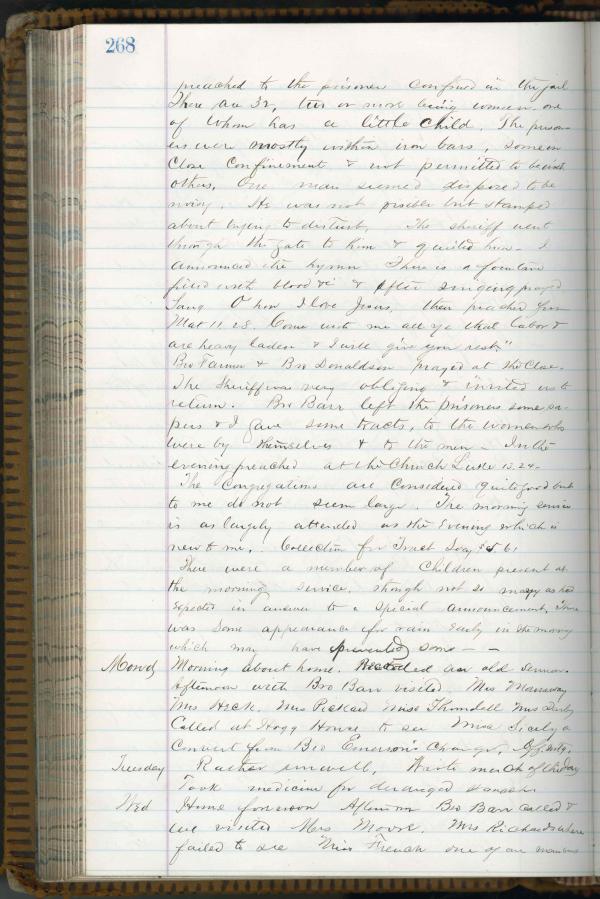 268
preached to the prisoners confined in the jail
There are 32, two or more being women - one
of whom has a little child. The prison-
ers were mostly within iron bars, some in
close confinement & not permitted to be with
others, One man seemed disposed to be
noisy. He was not profane but stamped
about trying to disturb. The sheriff went
through the gate to him & quieted him - I
announced the hymn There is a fountain
filled with blood &c & after singing prayed
Sang O how I love Jesus, then preached from
Mat 11.28. Come unto me all ye that labor &
are heavy laden & I will give you rest."
Bro Farmer & Bro Donaldson prayed at the close.
The Sheriff was very obliging & invited us to
return. Bro Barr left the prisoners some pa-
pers & I gave some tracts, to the women who
were by themselves & to the men - In the
evening preached at the Church Luke 13.24.
The Congregations are considered quite good but
to me do not seem large. The morning service
is as largely attended as the Evening which is
new to me. Collection for Tract Socy $5.61
There were a number of Children present at
the morning service, though not so many as had
expected in answer to a special announcement. There
was some appearance for rain early in the morning
which may have prevented some - -
Mond Morning about home. Recorded an old sermon.
Afternoon with Bro Barr visited Mrs
Mrs Heck. Mrs Pickard Miss Mrs
Called at Hogg House to see Miss a
Convert from Bro Emerson's Charge,
Tuesday Rather unwell, Write much of the day
Took medicine for deranged stomach
Wed Home forenoon Afternoon Bro Barr called &
we visited Mrs Moore. Mrs Richards whom
failed to see Miss French one of our members